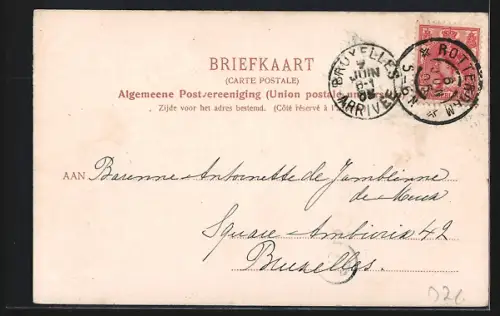 BRIEFKAART
(CARTE POSTALE)
Algemeene Postvereeniging (Union postale universelle)
Zijde voor het adres bestemd. (Côté réservé à l'
BRUXELLES
7
JUIN
ARRIVEE
ROTTERDAM
5-6N
AAN Baronne Antoinette de Jamblinne
de Meux
Square Ambiorix 42
Bruxelles.